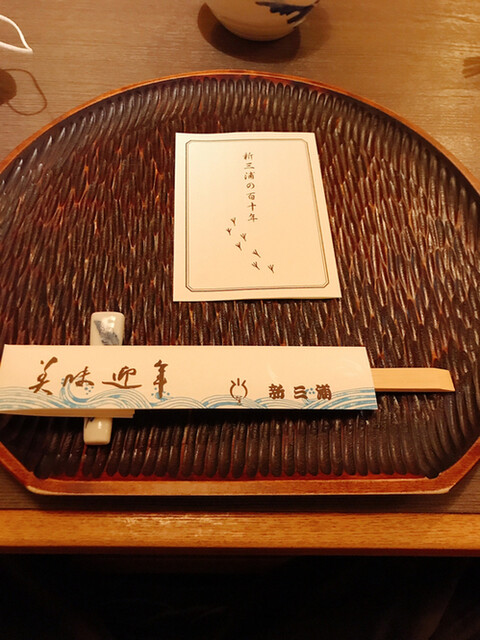 新三浦の百十年
美味迎年
新三浦